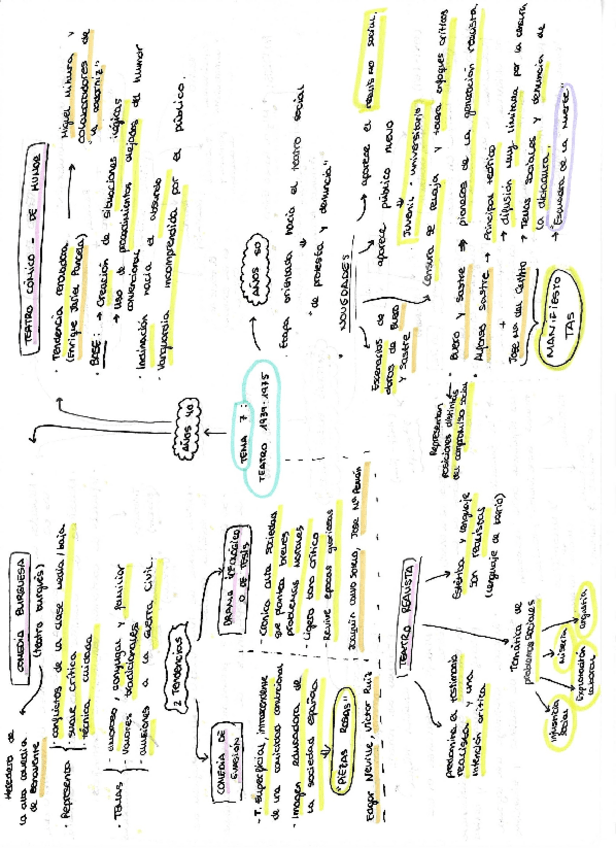 TEMA 7:
TEATRO 1939-1975
AÑOS 40
COMEDIA BURGUESA
(teatro burgués)
Heredero de
la alta comedia
de Benavente
· Representa
- conflictos de la clase media/baja
- suave crítica
- técnica cuidada
· TEMAS
- amoroso, conyugal y familiar
- valores tradicionales
- alusiones a la Guerra Civil.
2 Tendencias
COMEDIA DE
EVASIÓN
- T. superficial, intrascendente
de una comicidad convencional
- Imagen
la sociedad española
"PIEZAS ROSAS"
Edgar Neville, Víctor Ruiz
DRAMA IDEOLÓGICO
O DE TESIS
- Crónica alta sociedad
que plantea breves
problemas morales
- Ligero tono crítico
- Revive épocas gloriosas
Joaquín Calvo Sotelo, José Mª Pemán
TEATRO CÓMICO - DE HUMOR
· Tendencia renovadora
(Enrique Jardiel Poncela)
→ Miguel Mihura y
colaboradores de
"la codorniz"
· BASE: → Creación de situaciones ilógicas
→ Uso de procedimientos alejados del humor
convencional
· Inclinación hacia el absurdo
· Vanguardia incomprendida por el público.
AÑOS 50
· Etapa orientada hacia el teatro social
"de protesta y denuncia"
· NOVEDADES
→ aparece el realismo social.
aparece público nuevo
Juvenil - universitario
Censura se relaja y tolera enfoques críticos
Escenarios de
obras de Buero
y Sastre
· Buero y Sastre ⇒ pioneros de la generación realista.
Representan
posiciones distintas
del compromiso social
· Alfonso Sastre → Principal teórico
+
José Mª del Quinto
→ difusión muy limitada por la censura
→ Temas sociales y denuncia de
la dictadura.
→ "Escuadra de la muerte"
MANIFIESTO
TAS
TEATRO REALISTA
predomina el testimonio
realista y una
intención crítica
Temática de
problemas sociales
injusticia
social
miseria
Explotación
laboral
angustia
Estética y lenguaje
son realistas
(lenguaje de barrio)